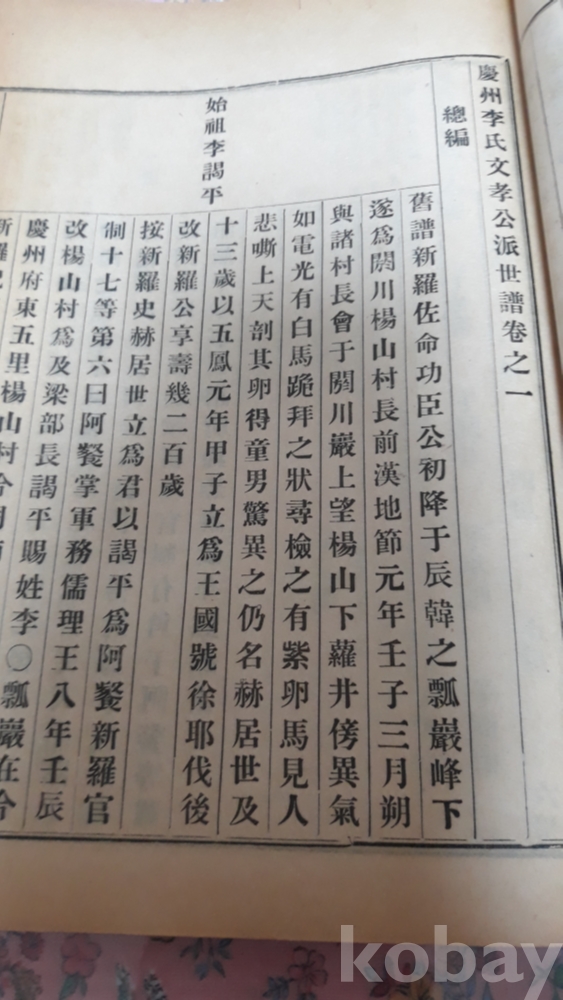 慶州李氏文孝公派世譜卷之一
總編
始祖李謁平
舊譜新羅佐命功臣公初降于辰韓之瓢巖峰下
遂爲閼川楊山村長前漢地節元年壬子三月朔
與諸村長會于閼川巖上望楊山下蘿井傍異氣
如電光有白馬跪拜之狀尋檢之有紫卵馬見人
悲嘶上天剖其卵得童男驚異之仍名赫居世及
十三歲以五鳳元年甲子立爲王國號徐耶伐後
改新羅公享壽幾二百歲
按新羅史赫居世立爲君以謁平爲阿餐新羅官
制十七等第六曰阿餐掌軍務儒理王八年壬辰
改楊山村爲及梁部長謁平賜姓李○瓢巖在今
慶州府東五里楊山村今
新羅
kobay